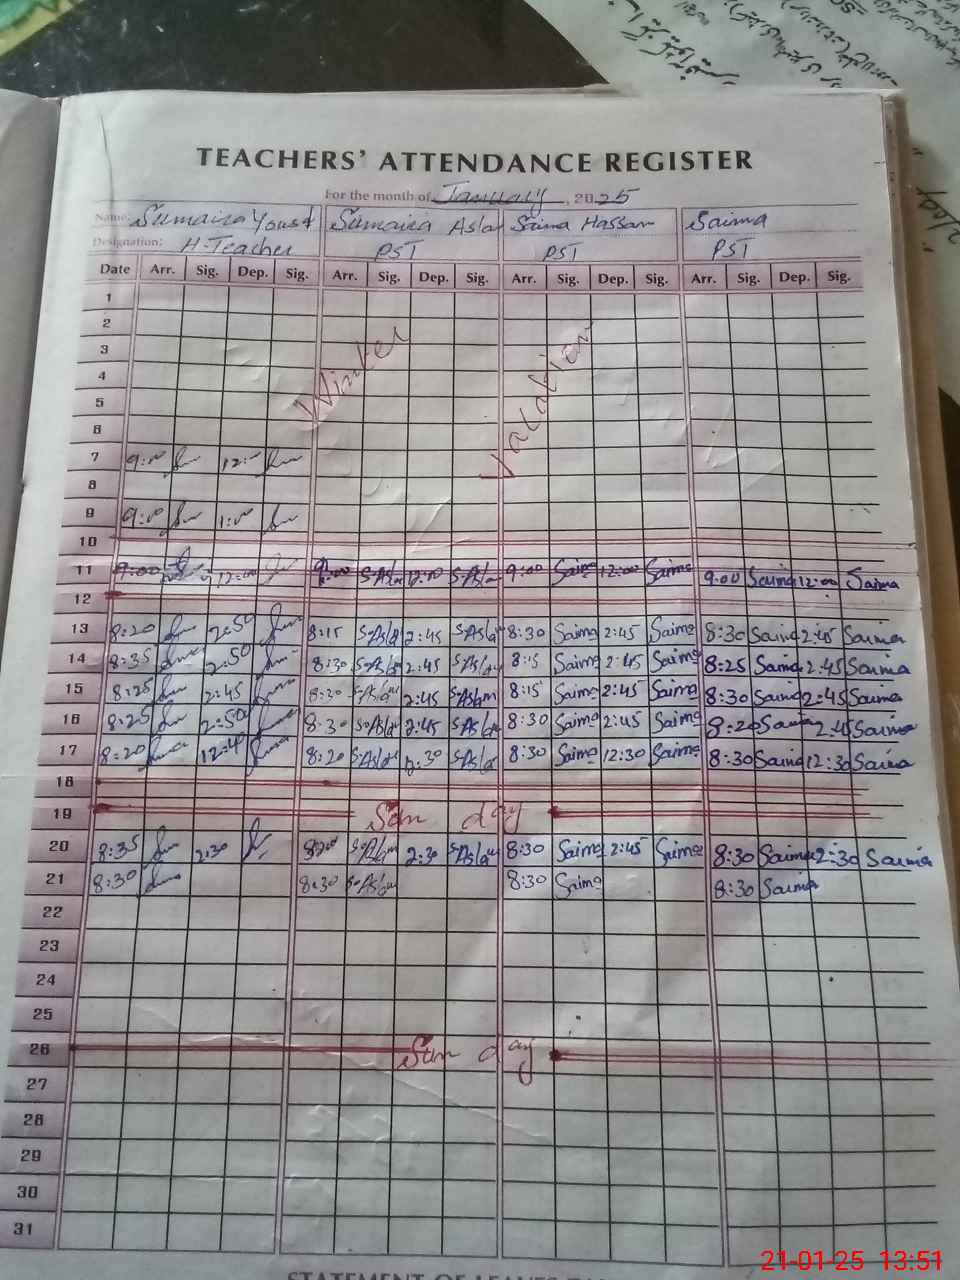 TEACHERS' ATTENDANCE REGISTER
For the month of January, 2025
Name: Sumaira Yousaf Sumaira Aslam Saima Hassan Saima
Designation: H-Teacher PST PST PST
Date Arr. Sig. Dep. Sig. Arr. Sig. Dep. Sig. Arr. Sig. Dep. Sig. Arr. Sig. Dep. Sig.
1
2
3
4
5
6
Winter Vacation
7 9:00 12:00
8
9 9:00 1:00
10
11 9:00 12:00 S-Aslam 12:00 S-Aslam 9:00 Saima 12:00 Saima 9:00 Saima 12:00 Saima
12
13 8:20 2:50 8:15 S-Aslam 2:45 S-Aslam 8:30 Saima 2:45 Saima 8:30 Saima 2:45 Saima
14 8:35 2:50 8:30 S-Aslam 2:45 S-Aslam 8:15 Saima 2:45 Saima 8:25 Saima 2:45 Saima
15 8:25 2:45 8:30 S-Aslam 2:45 S-Aslam 8:15 Saima 2:45 Saima 8:30 Saima 2:45 Saima
16 8:25 2:50 8:30 S-Aslam 2:45 S-Aslam 8:30 Saima 2:45 Saima 8:20 Saima 2:45 Saima
17 8:20 12:40 8:20 S-Aslam 12:30 S-Aslam 8:30 Saima 12:30 Saima 8:30 Saima 12:30 Saima
18
19 Sun day
20 8:35 2:30 S-Aslam 2:30 S-Aslam 8:30 Saima 2:45 Saima 8:30 Saima 2:30 Saima
21 8:30 8:30 S-Aslam 8:30 Saima 8:30 Saima
22
23
24
25
26 Sun day
27
28
29
30
31
STATEMENT OF LEAVES
21-01-25 13:51